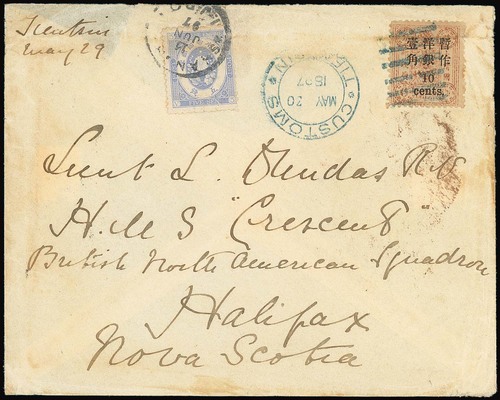 Tientsin
May 29
JUN
97
CUSTOMS
MAY 30
1897
TIENTSIN
暫作
洋銀
壹角
10
cents.
Lieut L. Dundas R.N
H.M.S "Crescent"
British North American Squadron
Halifax
Nova Scotia